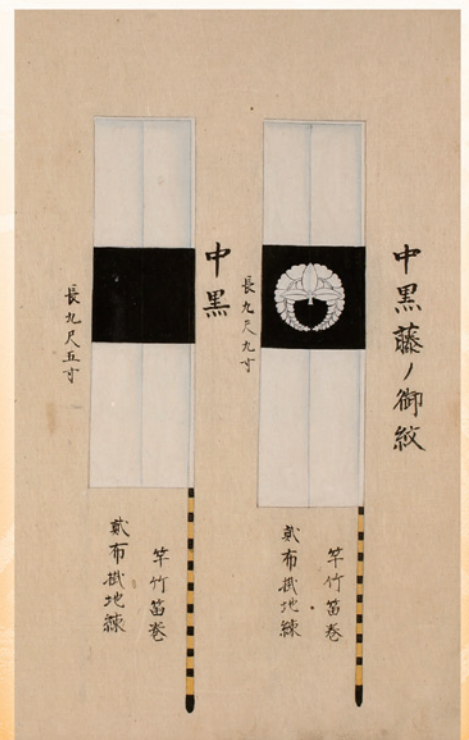 中黒藤ノ御紋
長九尺九寸
竿竹笛巻
貮布掛地練
中黒
長九尺五寸
竿竹笛巻
貮布掛地練